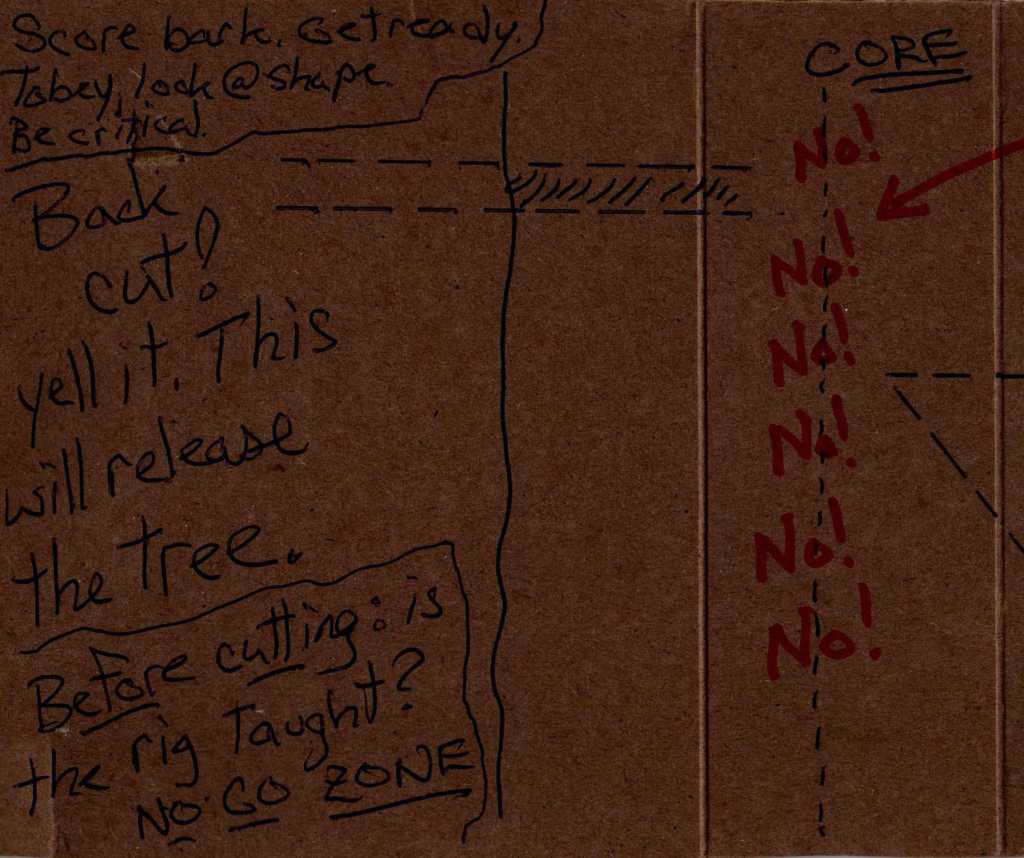 Score bark. Get ready.
Tobey, look @ shape.
Be critical.
Back
cut!
yell it. This
will release
the tree.
Before cutting: is
the rig taught?
NO GO ZONE
CORE
No!
No!
No!
No!
No!
No!